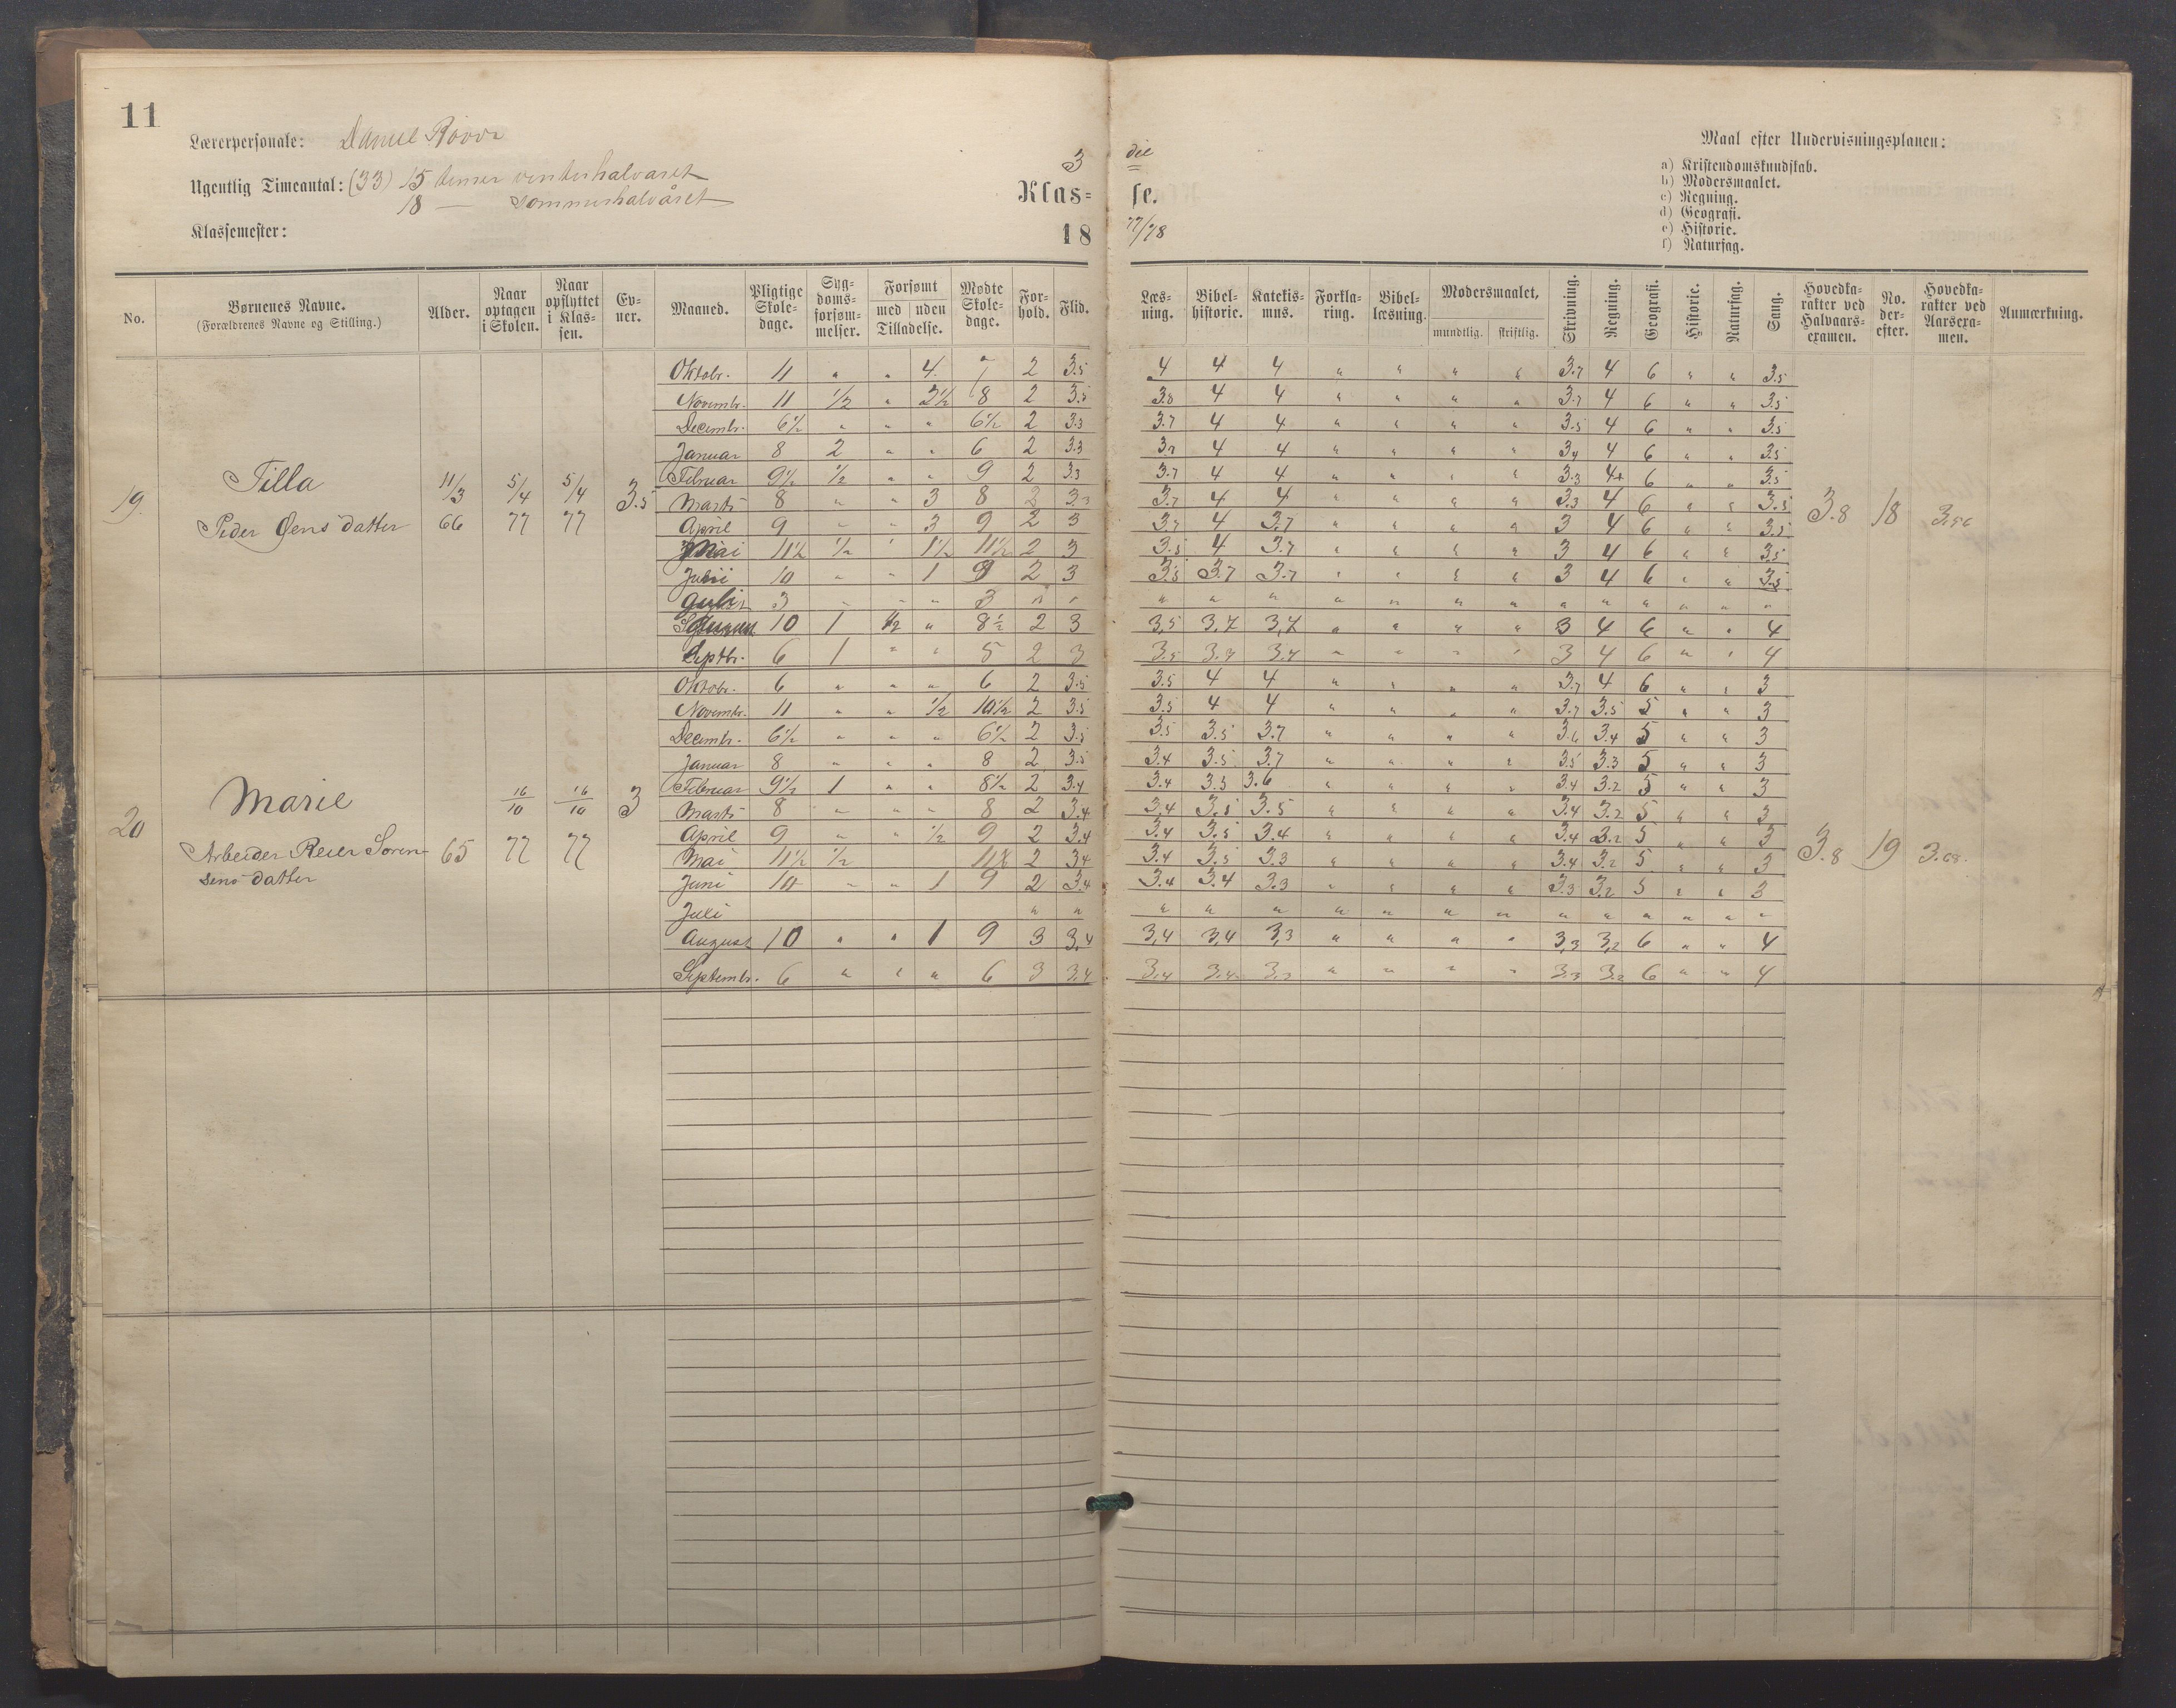 11
Lærerpersonale: Daniel
Ugentlig Timeantal: (33) 15 timer vinterhalvaret
18 — sommerhalvåret
Klassemester:
3 die
Klas= se.
18 77/78
Maal efter Undervisningsplanen:
a) Kristendomskundskab.
b) Modersmaalet.
c) Regning.
d) Geografi.
e) Historie.
f) Naturfag.
No. Børnenes Navne. (Forældrenes Navne og Stilling.) Alder. Naar optagen i Skolen. Naar opflyttet i Klas-sen. Ev-ner. Maaned. Pligtige Skole-dage. Syg-doms-forsøm-melser. Forsømt med uden Tilladelse. Mødte Skole-dage. For-hold. Flid. Læs-ning. Bibel-historie. Katekis-mus. Forkla-ring. Bibel-læsning. Modersmaalet, mundtlig. skriftlig. Skrivning. Regning. Geografi. Historie. Naturfag. Gang. Hovedka-rakter ved Halvaars-examen. No. der-efter. Hovedka-rakter ved Aarsexa-men. Anmærkning.
19. Tilla
Peder datter
11/3 66 5/4 77 5/4 77 3.5
Oktobr. 11 " " 4 2 3.5 4 4 4 " " " " 3.7 4 6 " " 3.5
Novembr. 11 1/2 " 2 1/2 8 2 3.5 3.8 4 4 " " " " 3.7 4 6 " " 3.5
Decembr. 6 1/2 " " " 6 1/2 2 3.3 3.7 4 4 " " " " 3.5 4 6 " " 3.5
Januar 8 2 " " 6 2 3.3 3.7 4 4 " " " " 3.4 4 6 " " 3.5
Februar 9 1/2 1/2 " " 9 2 3.3 3.7 4 4 " " " " 3.3 4+ 6 " " 3.5
Marts 8 " " 3 8 2 3.3 3.7 4 4 " " " " 3.3 4 6 " " 3.5
April 9 " " 3 9 2 3 3.7 4 3.7 " " " " 3 4 6 " " 3.5
Mai 11 1/2 1/2 " 1 1/2 11 1/2 2 3 3.5 4 3.7 " " " " 3 4 6 " " 3.5
Juni 10 " " 1 9 2 3 3.5 3.7 3.7 " " " " 3 4 6 " " 3.5
Juli 3 " " " 3 " " " " " " " " " " " " " " "
10 1 1/2 " 8 1/2 2 3 3,5 3,7 3,7 " " " " 3 4 6 " " 4
Septbr. 6 1 " " 5 2 3 3.5 3.7 3.7 " " " " 3 4 6 " " 4
3.8 18 3.56
20 Marie
Arbeider Reier Soren-
sens datter
65 16/10 77 16/10 77 3
Oktobr. 6 " " " 6 2 3.5 3.5 4 4 " " " " 3.7 4 6 " " 3
Novembr. 11 " " 1/2 10 1/2 2 3.5 3.5 4 4 " " " " 3.7 3.5 5 " " 3
Decembr. 6 1/2 " " " 6 1/2 2 3.5 3.5 3.5 3.7 " " " " 3.6 3.4 5 " " 3
Januar 8 " " " 8 2 3.5 3.4 3.5 3.7 " " " " 3.5 3.3 5 " " 3
Februar 9 1/2 1 " " 8 1/2 2 3.4 3.4 3.5 3.6 " " " " 3.4 3.2 5 " " 3
Marts 8 " " " 8 2 3.4 3.4 3.5 3.5 " " " " 3.4 3.2 5 " " 3
April 9 " " 1/2 9 2 3.4 3.4 3.5 3.4 " " " " 3.4 3.2 5 " " 3
Mai 11 1/2 1/2 2 3.4 3.4 3.5 3.3 " " " " 3.4 3.2 5 " " 3
Juni 10 " " 1 9 2 3.4 3.4 3.4 3.3 " " " " 3.3 3.2 5 " " 3
Juli " " " " " " " " " " " " " " "
August 10 " " 1 9 3 3,4 3,4 3,4 3,3 " " " " 3,3 3,2 6 " " 4
Septembr. 6 " " " 6 3 3.4 3.4 3.4 3.2 " " " " 3.3 3.2 6 " " 4
3.8 19 3.68